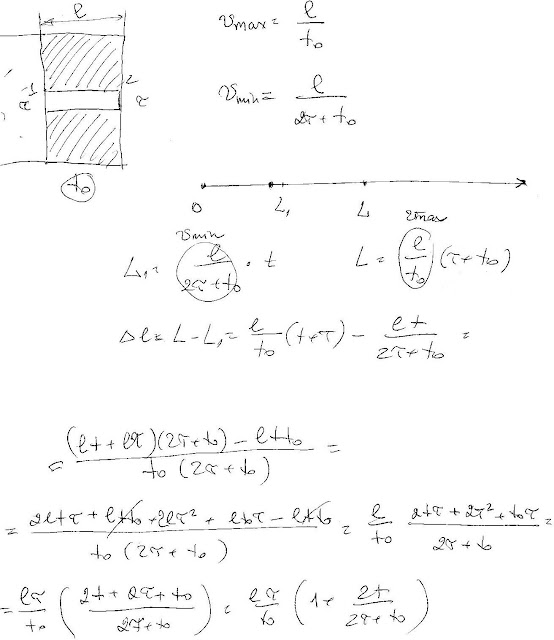 l
v_max = l / t₀
1
2
τ
τ
v_min = l / (2τ + t₀)
t₀
0 L₁ L
v_min v_max
L₁ = l / (2τ + t₀) · t L = l / t₀ (τ + t₀)
Δl = L - L₁ = l / t₀ (t + τ) - lt / (2τ + t₀) =
= ((lt + lτ)(2τ + t₀) - ltt₀) / (t₀ (2τ + t₀)) =
= (2ltτ + ltt₀ + 2lτ² + lt₀τ - ltt₀) / (t₀ (2τ + t₀)) = l / t₀ (2tτ + 2τ² + t₀τ) / (2τ + t₀) =
= lτ / t₀ ((2t + 2τ + t₀) / (2τ + t₀)) = lτ / t₀ (1 + 2t / (2τ + t₀))